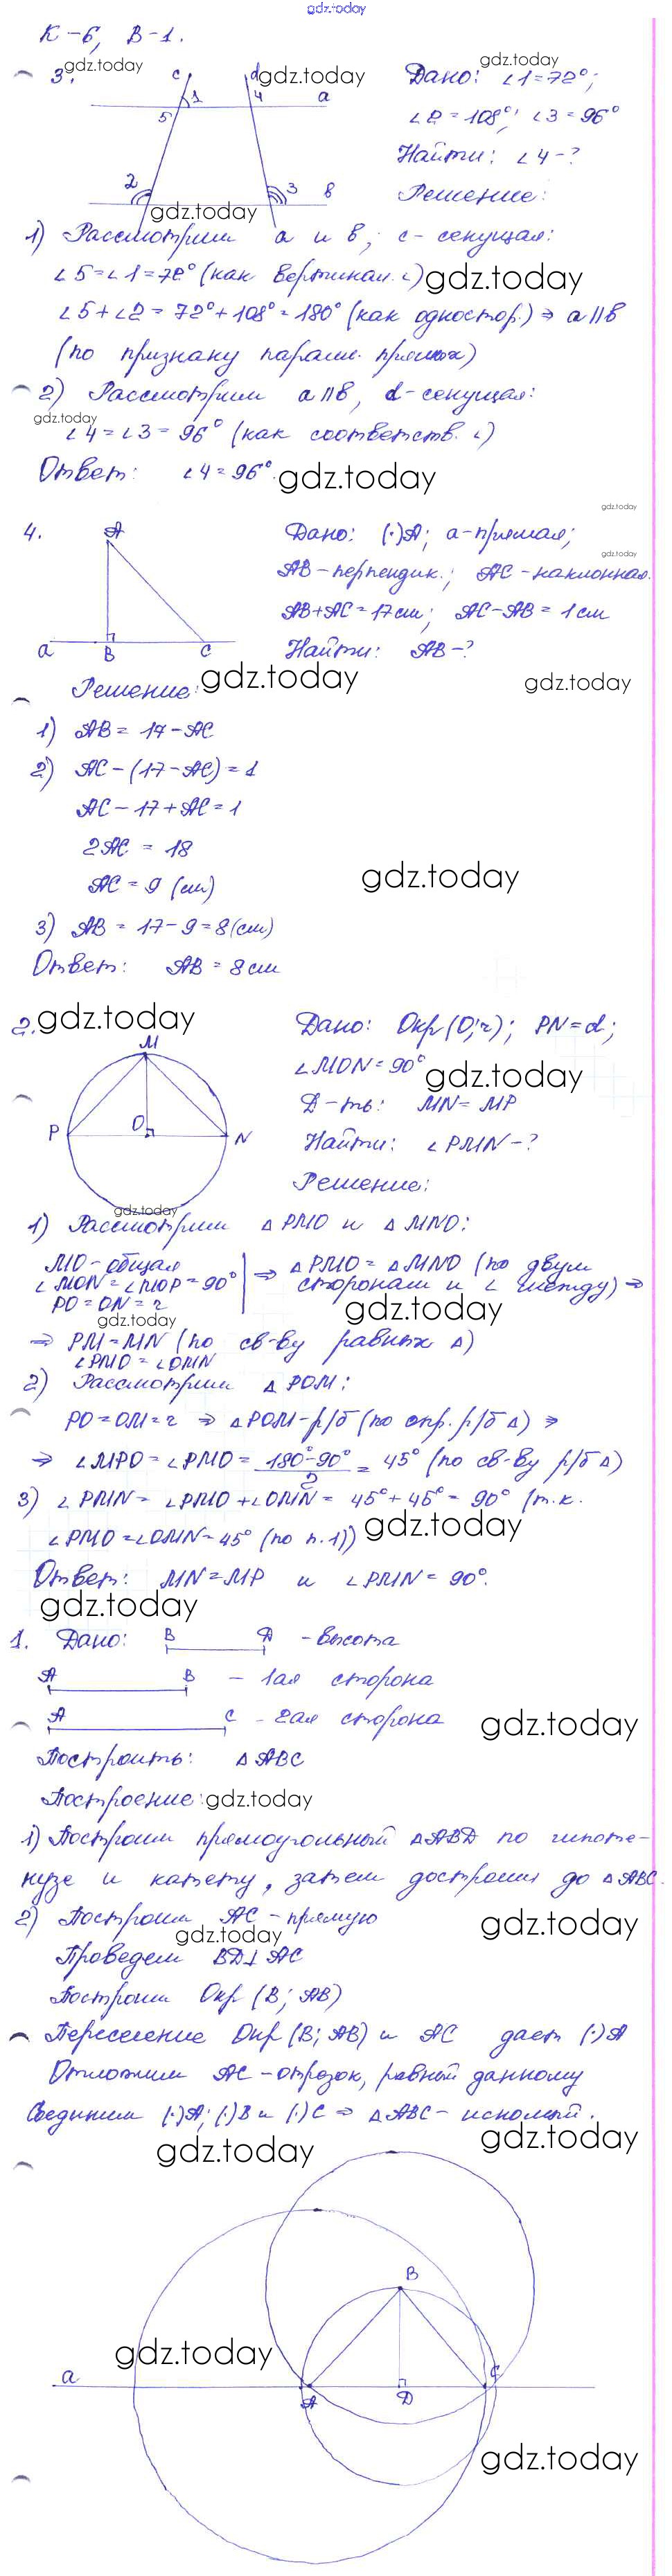 gdz.today
К-6, В-1.
gdz.today
3. c 1 d gdz.today 4 a 5 2 3 в
gdz.today
gdz.today
Дано: ∠1=72°;
∠2=108°; ∠3=96°
Найти: ∠4-?
Решение:
1) Рассмотрим a и в, c-секущая:
∠5=∠1=72° (как вертикал. ∠) gdz.today
∠5+∠2=72°+108°=180° (как одностор.) ⇒ a∥в
(по признаку паралл. прямых)
2) Рассмотрим a∥в, d-секущая:
gdz.today
∠4=∠3=96° (как соответств. ∠)
Ответ: ∠4=96°. gdz.today
gdz.today
4. A a B C
Дано: (·)A; a-прямая;
gdz.today
AB-перпендик.; AC-наклонная.
AB+AC=17см; AC-AB=1см
Найти: AB-?
Решение: gdz.today
gdz.today
1) AB=17-AC
2) AC-(17-AC)=1
AC-17+AC=1
2AC=18
AC=9 (см)
gdz.today
3) AB=17-9=8(см)
Ответ: AB=8см
2. gdz.today
M P O N
Дано: Окр(O;r); PN=d;
∠MON=90°
gdz.today
Д-ть: MN=MP
Найти: ∠PMN-?
Решение:
gdz.today
1) Рассмотрим △PMO и △MNO:
MO-общая
∠MON=∠MOP=90°
PO=ON=r
⇒ △PMO=△MNO (по двум
сторонам и ∠ между) ⇒
gdz.today
gdz.today
⇒ PM=MN (по св-ву равных △)
∠PMO=∠OMN
2) Рассмотрим △POM:
PO=OM=r ⇒ △POM-р/б (по опр. р/б △) ⇒
⇒ ∠MPO=∠PMO= (180°-90°)/2 = 45° (по св-ву р/б △)
3) ∠PMN=∠PMO+∠OMN=45°+45°=90° (т.к.
∠PMO=∠OMN=45° (по п.1)) gdz.today
Ответ: MN=MP и ∠PMN=90°.
gdz.today
1. Дано: B D - высота
A B - 1ая сторона
A C - 2ая сторона
gdz.today
Построить: △ABC
Построение: gdz.today
1) Построим прямоугольный △ABD по гипоте-
нузе и катету, затем достроим до △ABC.
2) Построим AC-прямую
gdz.today
gdz.today
Проведем BD⊥AC
Построим Окр(B;AB)
Пересечение Окр(B;AB) и AC дает (·)A
Отложим AC-отрезок, равный данному
Соединим (·)A; (·)B и (·)C ⇒ △ABC-искомый.
gdz.today
gdz.today
B
gdz.today
a A D C
gdz.today